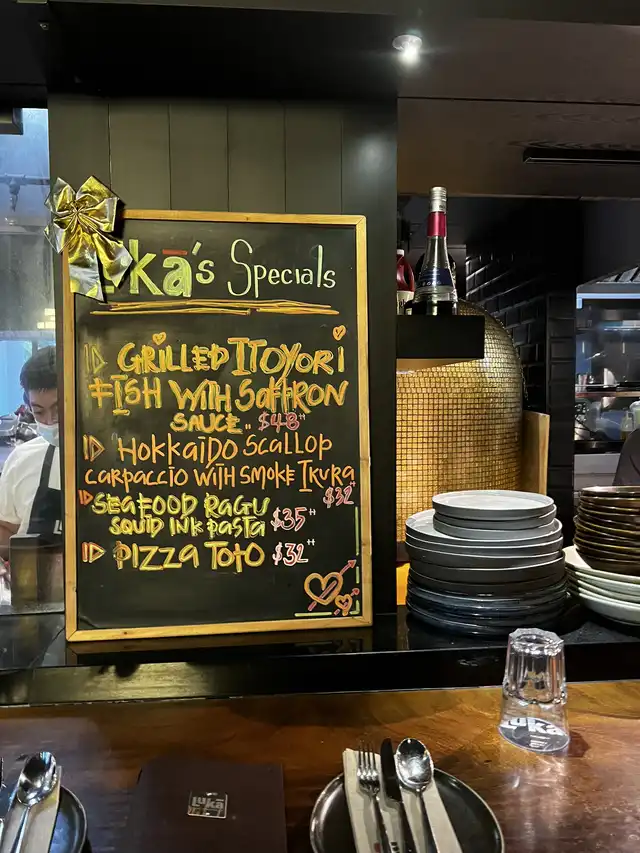 Lukā's Specials
GRILLED ITOYORI
FISH WITH SAFFRON
SAUCE .. $48++
"HOKKAIDO SCALLOP
CARPACCIO WITH SMOKE IKURA
$32++
SEAFOOD RAGU
SQUID INK PASTA $35++
PIZZA TOTO $32++
LUKā
LUKā